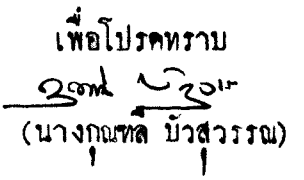 เพื่อโปรดทราบ
(นางกุณฑลี บัวสุวรรณ)